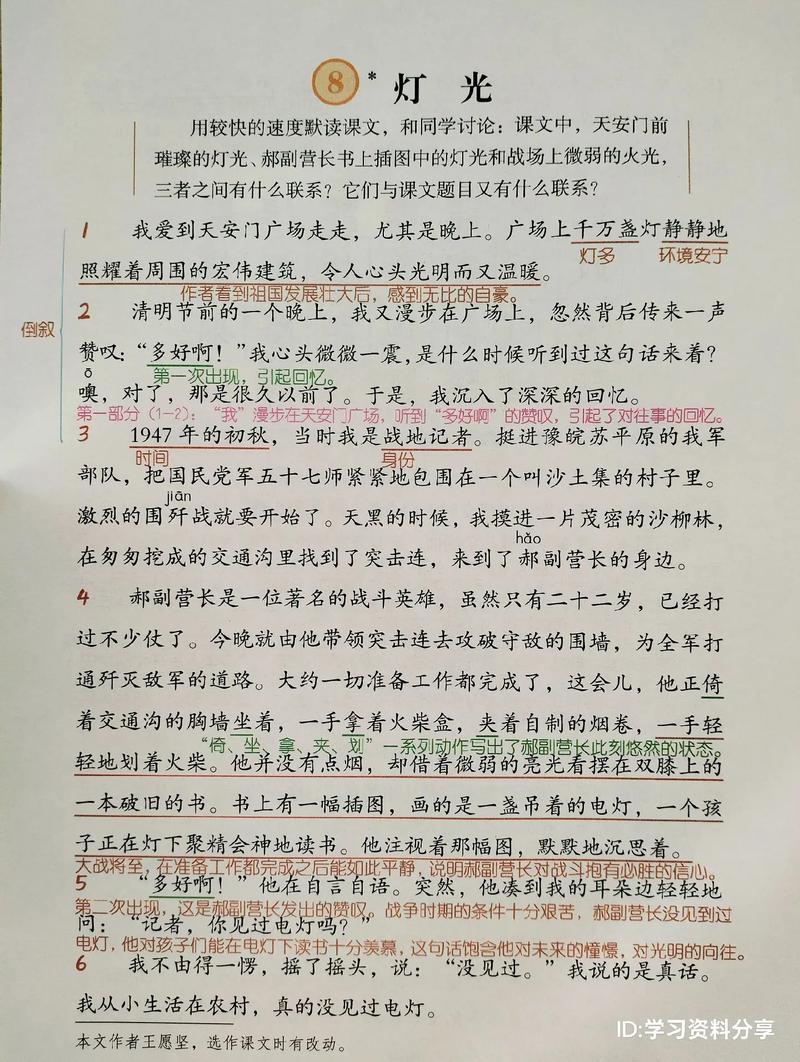 8 * 灯 光
用较快的速度默读课文，和同学讨论：课文中，天安门前
璀璨的灯光、郝副营长书上插图中的灯光和战场上微弱的火光，
三者之间有什么联系？它们与课文题目又有什么联系？
1 我爱到天安门广场走走，尤其是晚上。广场上千万盏灯静静地
灯多 环境安宁
照耀着周围的宏伟建筑，令人心头光明而又温暖。
作者看到祖国发展壮大后，感到无比的自豪。
倒叙
2 清明节前的一个晚上，我又漫步在广场上，忽然背后传来一声
赞叹：“多好啊！”我心头微微一震，是什么时候听到过这句话来着？
ō 第一次出现，引起回忆。
噢，对了，那是很久以前了。于是，我沉入了深深的回忆。
第一部分（1-2）：“我”漫步在天安门广场，听到“多好啊”的赞叹，引起了对往事的回忆。
3 1947 年的初秋，当时我是战地记者。挺进豫皖苏平原的我军
时间 身份
部队，把国民党军五十七师紧紧地包围在一个叫沙土集的村子里。
jiān
激烈的围歼战就要开始了。天黑的时候，我摸进一片茂密的沙柳林，
hǎo
在匆匆挖成的交通沟里找到了突击连，来到了郝副营长的身边。
4 郝副营长是一位著名的战斗英雄，虽然只有二十二岁，已经打
过不少仗了。今晚就由他带领突击连去攻破守敌的围墙，为全军打
通歼灭敌军的道路。大约一切准备工作都完成了，这会儿，他正倚
着交通沟的胸墙坐着，一手拿着火柴盒，夹着自制的烟卷，一手轻
“倚、坐、拿、夹、划”一系列动作写出了郝副营长此刻悠然的状态。
轻地划着火柴。他并没有点烟，却借着微弱的亮光看摆在双膝上的
一本破旧的书。书上有一幅插图，画的是一盏吊着的电灯，一个孩
子正在灯下聚精会神地读书。他注视着那幅图，默默地沉思着。
大战将至，在准备工作都完成之后能如此平静，说明郝副营长对战斗抱有必胜的信心。
5 “多好啊！”他在自言自语。突然，他凑到我的耳朵边轻轻地
第二次出现，这是郝副营长发出的赞叹。战争时期的条件十分艰苦，郝副营长没见到过
问：“记者，你见过电灯吗？”
电灯，他对孩子们能在电灯下读书十分羡慕，这句话饱含他对未来的憧憬，对光明的向往。
6 我不由得一愣，摇了摇头，说：“没见过。”我说的是真话。
我从小生活在农村，真的没见过电灯。
本文作者王愿坚，选作课文时有改动。
ID:学习资料分享